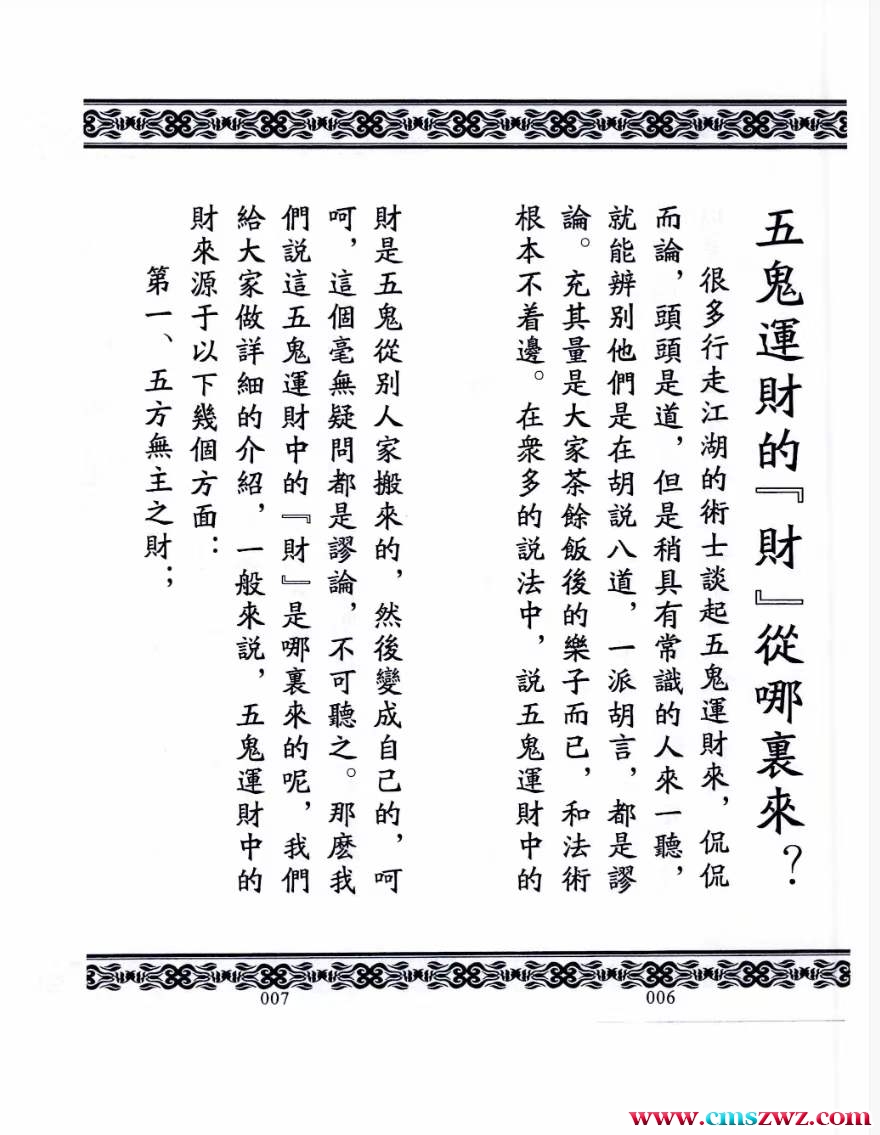 五鬼運財的『財』從哪裏來？
很多行走江湖的術士談起五鬼運財來，侃侃
而論，頭頭是道，但是稍具有常識的人來一聽，
就能辨別他們是在胡説八道，一派胡言，都是謬
論。充其量是大家茶餘飯後的樂子而已，和法術
根本不着邊。在衆多的説法中，説五鬼運財中的
財是五鬼從别人家搬來的，然後變成自己的，呵
呵，這個毫無疑問都是謬論，不可聽之。那麽我
們説這五鬼運財中的『財』是哪裏來的呢，我們
給大家做詳細的介紹，一般來説，五鬼運財中的
財來源于以下幾個方面：
第一、五方無主之財；
007
006
www.cmszwz.com